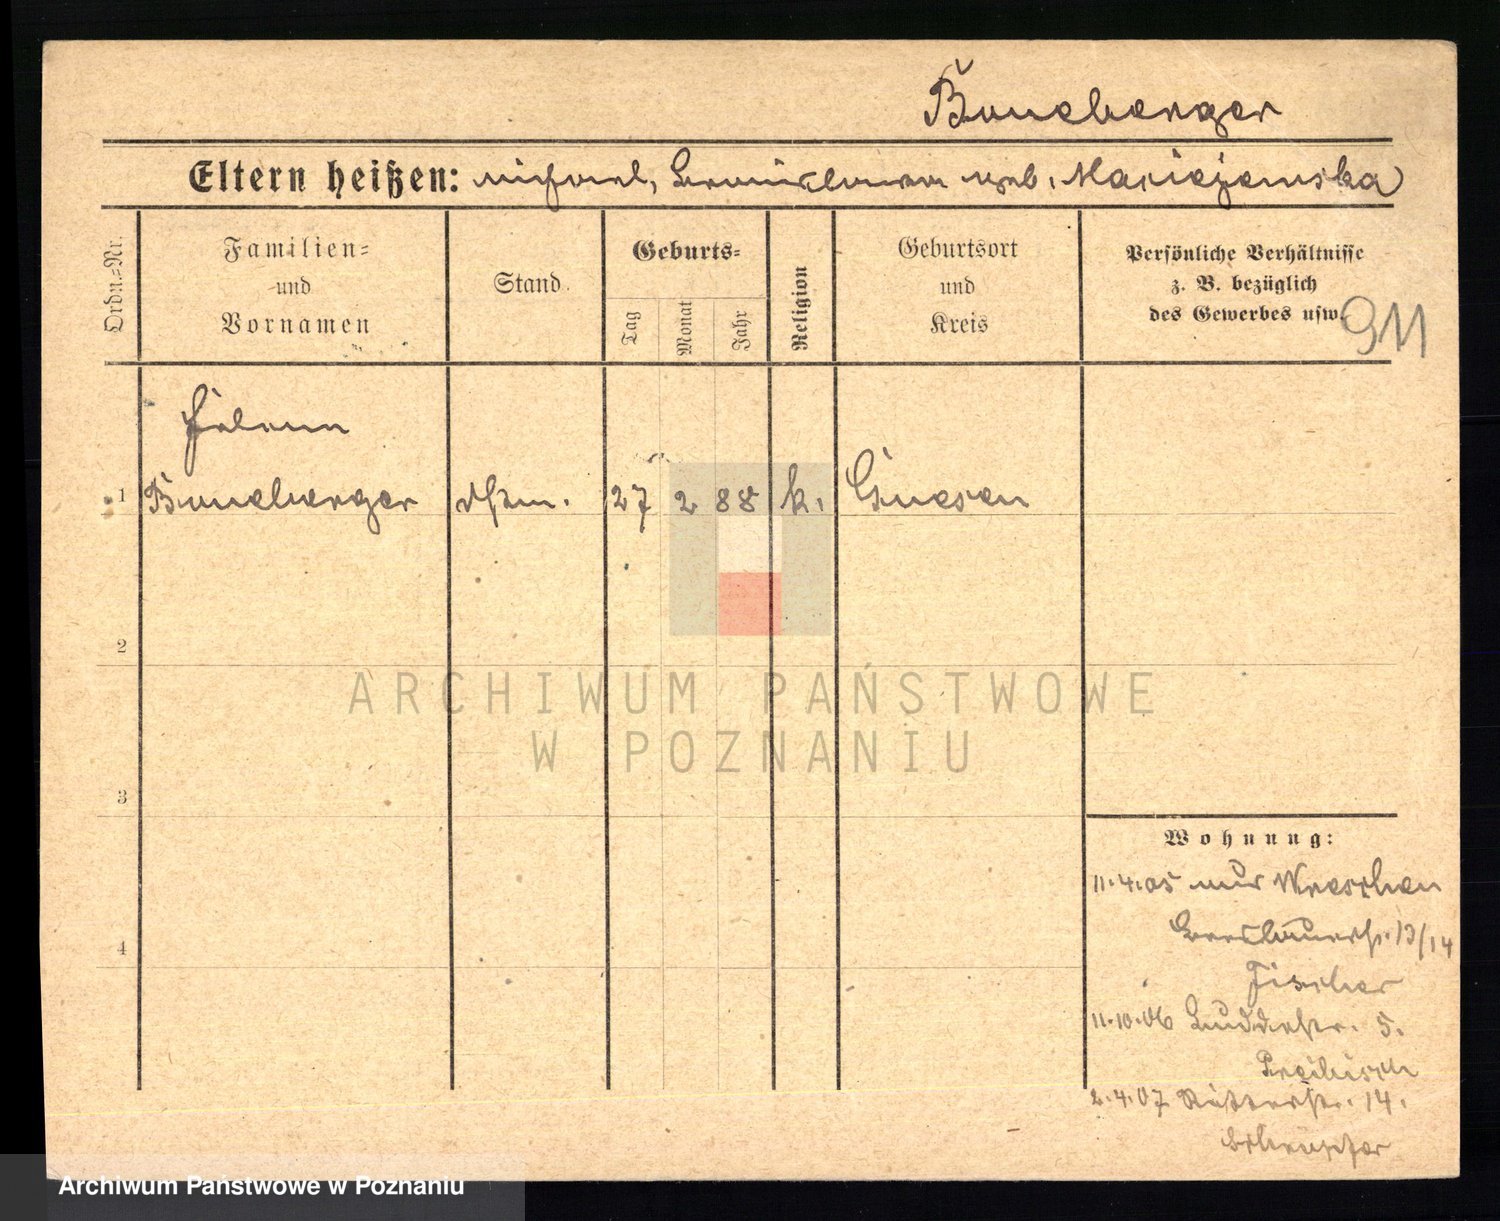 Boneberger
Eltern heißen: Michael, Bronislawa geb. Maciejewska
Ordn.=Nr.
Familien=
und
Vornamen
Stand.
Geburts=
Tag
Monat
Jahr
Religion
Geburtsort
und
Kreis
Persönliche Verhältnisse
z. B. bezüglich
des Gewerbes usw.
911
Helene
1 Boneberger 27 2 88 k. Gnesen
2
3
4
ARCHIWUM PAŃSTWOWE
W POZNANIU
Wohnung:
11.4.05 aus Wreschen
Breslauerstr. 13/14
Fischer
11.10.06 Buddestr. 5.
Preibisch
2.4.07 Ritterstr. 14.
Archiwum Państwowe w Poznaniu